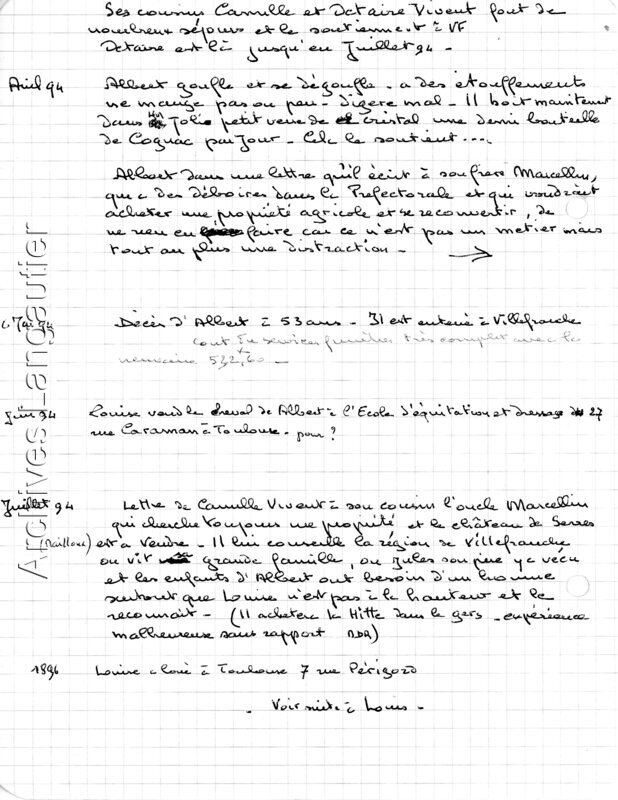 Ses cousins Camille et Octaire Vivent font de
nombreux séjours et le soutiennent à VF
Octaire est là jusqu'en Juillet 94 -
Avril 94 Albert gonfle et se dégonfle - a des étouffements
ne mange pas ou peu - digère mal - Il boit maintenant
dans un joli petit verre de cristal une demi bouteille
de Cognac par Jour - Cela le soutient....
Albert dans une lettre qu'il écrit à son frère Marcellin,
qui a des déboires dans la Préfectorale et qui voudrait
acheter une propriété agricole et se reconvertir, de
ne rien en faire car ce n'est pas un métier mais
tout au plus une distraction - →
Mai 94 Décès d'Albert à 53 ans - Il est enterré à Villefranche
cout du services funèbre très complet avec la
neuvaine 532,60 -
Juin 94 Louise vend le cheval de Albert à l'Ecole d'équitation et dressage 27
rue Caraman à Toulouse - pour ?
Juillet 94 Lettre de Camille Vivent à son cousin l'oncle Marcellin
qui cherche toujours une propriété et le château de Serres
est à vendre - Il lui conseille la région de Villefranche
où vit grande famille, où Jules son père y a vécu
et les enfants d'Albert ont besoin d'un homme
surtout que Louise n'est pas à la hauteur et le
reconnait - (Il achetera la Hitte dans le gers - expérience
malheureuse sans rapport BDR)
1896 Louise a loué à Toulouse 7 rue Périgord
- Voir suite à Louis -
Archives_Langautier